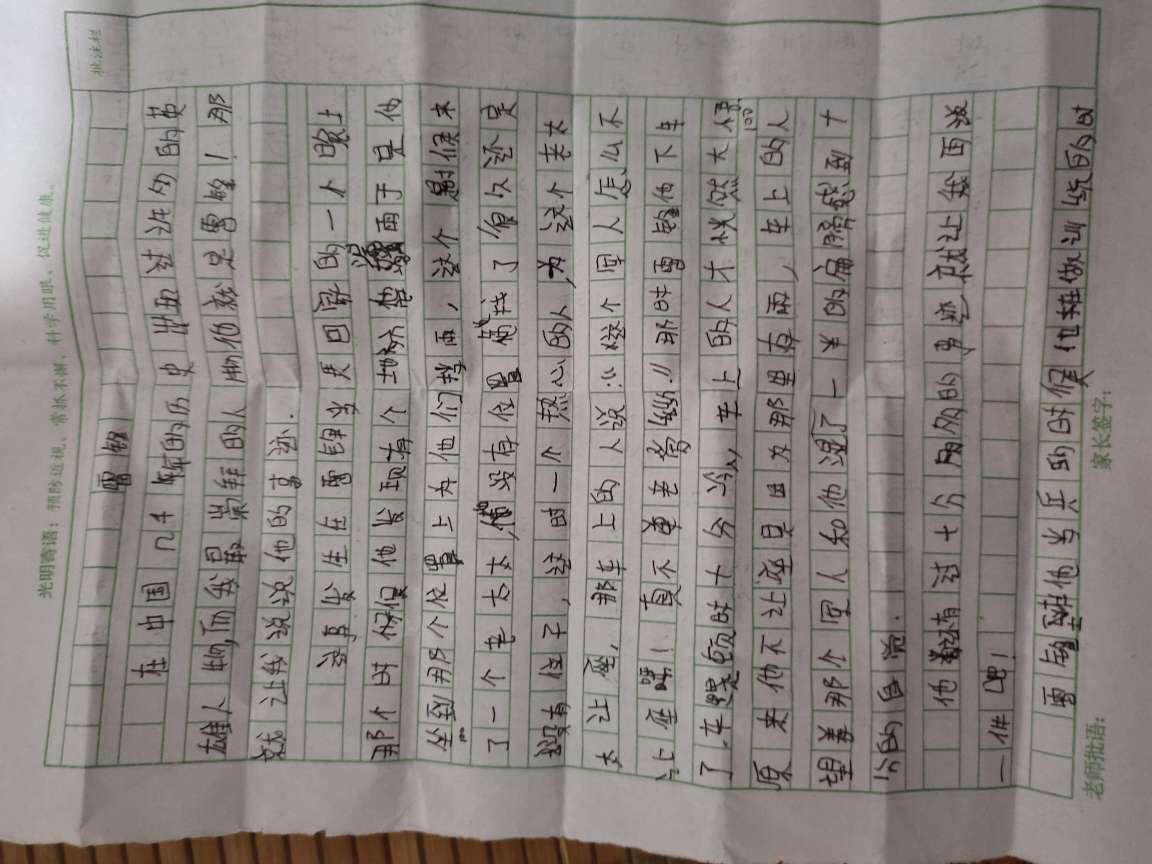 光明寄语：预防近视、常抓不懈、科学用眼、促进健康。
批注栏
雷锋
在中国几千年的历史出西过许多的英
雄人物,而我最崇拜的人物他就是雷锋！那
就让我说说他的事迹.
故事发生在雷锋当兵回家的一个晚上
那个时候但他发现有个地方
雨于是他
坐到那个位置上为他们挡雨，这个时候来
了一个老古太,
没有位置
了 有久还是
没有位子，这时一个热心的人,为这个老太
太让座，那车上的人说:“这个军人怎么不
让座嘛！真不尊老爱幼.”那时雷锋他下车
了.车
顿时十分冷,车上的人才恍然大悟
原来他不让座是因为那里有雨，车上的人
望着那个军人和他湿了一半的肩膀感到十
分的自觉.
他还有过十分多的事迹就让我再说
一件吧！
雷锋
他当兵的时候他在做训练的时
老师批语：
家长签字：